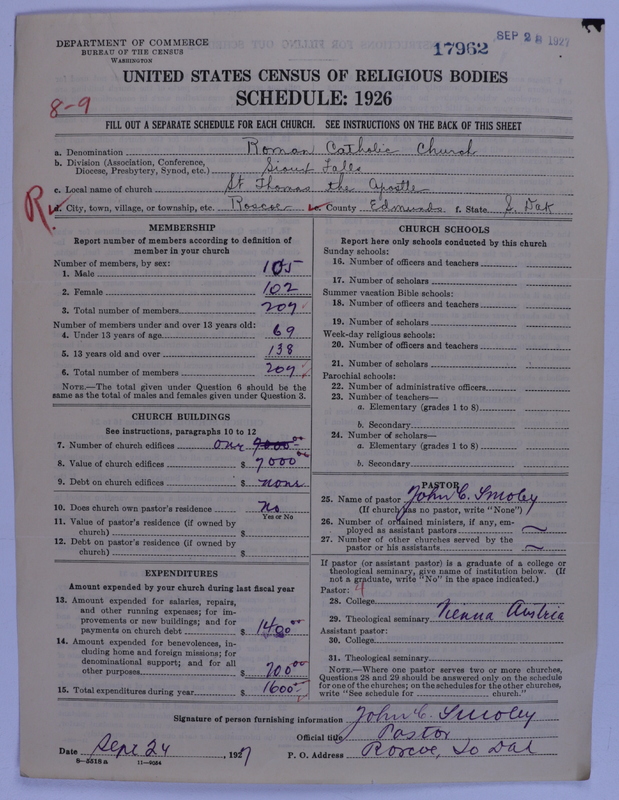 DEPARTMENT OF COMMERCE
BUREAU OF THE CENSUS
WASHINGTON
17962
SEP 28 1927
UNITED STATES CENSUS OF RELIGIOUS BODIES
SCHEDULE: 1926
8-9
FILL OUT A SEPARATE SCHEDULE FOR EACH CHURCH. SEE INSTRUCTIONS ON THE BACK OF THIS SHEET
a. Denomination Roman Catholic Church
b. Division (Association, Conference,
Diocese, Presbytery, Synod, etc.) Sioux Falls
c. Local name of church St Thomas the Apostle
d. City, town, village, or township, etc. Roscoe e. County Edmunds f. State S. Dak
MEMBERSHIP
Report number of members according to definition of
member in your church
Number of members, by sex:
1. Male 105
2. Female 102
3. Total number of members 207
Number of members under and over 13 years old:
4. Under 13 years of age 69
5. 13 years old and over 138
6. Total number of members 207
NOTE.—The total given under Question 6 should be the
same as the total of males and females given under Question 3.
CHURCH BUILDINGS
See instructions, paragraphs 10 to 12
7. Number of church edifices one
8. Value of church edifices $ 7000 00
9. Debt on church edifices $ none
10. Does church own pastor's residence No
Yes or No
11. Value of pastor's residence (if owned by
church) $
12. Debt on pastor's residence (if owned by
church) $
EXPENDITURES
Amount expended by your church during last fiscal year
13. Amount expended for salaries, repairs,
and other running expenses; for im-
provements or new buildings; and for
payments on church debt $ 1400 00
14. Amount expended for benevolences, in-
cluding home and foreign missions; for
denominational support; and for all
other purposes $ 200 00
15. Total expenditures during year $ 1600
CHURCH SCHOOLS
Report here only schools conducted by this church
Sunday schools:
16. Number of officers and teachers
17. Number of scholars
Summer vacation Bible schools:
18. Number of officers and teachers
19. Number of scholars
Week-day religious schools:
20. Number of officers and teachers
21. Number of scholars
Parochial schools:
22. Number of administrative officers
23. Number of teachers—
a. Elementary (grades 1 to 8)
b. Secondary
24. Number of scholars—
a. Elementary (grades 1 to 8)
b. Secondary
PASTOR
25. Name of pastor John C. Smoley
(If church has no pastor, write "None")
26. Number of ordained ministers, if any, em-
ployed as assistant pastors
27. Number of other churches served by the
pastor or his assistants
If pastor (or assistant pastor) is a graduate of a college or
theological seminary, give name of institution below. (If
not a graduate, write "No" in the space indicated.)
Pastor:
28. College
29. Theological seminary Vienna Austria
Assistant pastor:
30. College
31. Theological seminary
NOTE.—Where one pastor serves two or more churches,
Questions 28 and 29 should be answered only on the schedule
for one of the churches; on the schedules for the other churches,
write "See schedule for church."
Signature of person furnishing information John C. Smoley
Official title Pastor
Date Sept 24, 1927 P. O. Address Roscoe, So Dak
8—5518a 11—8054